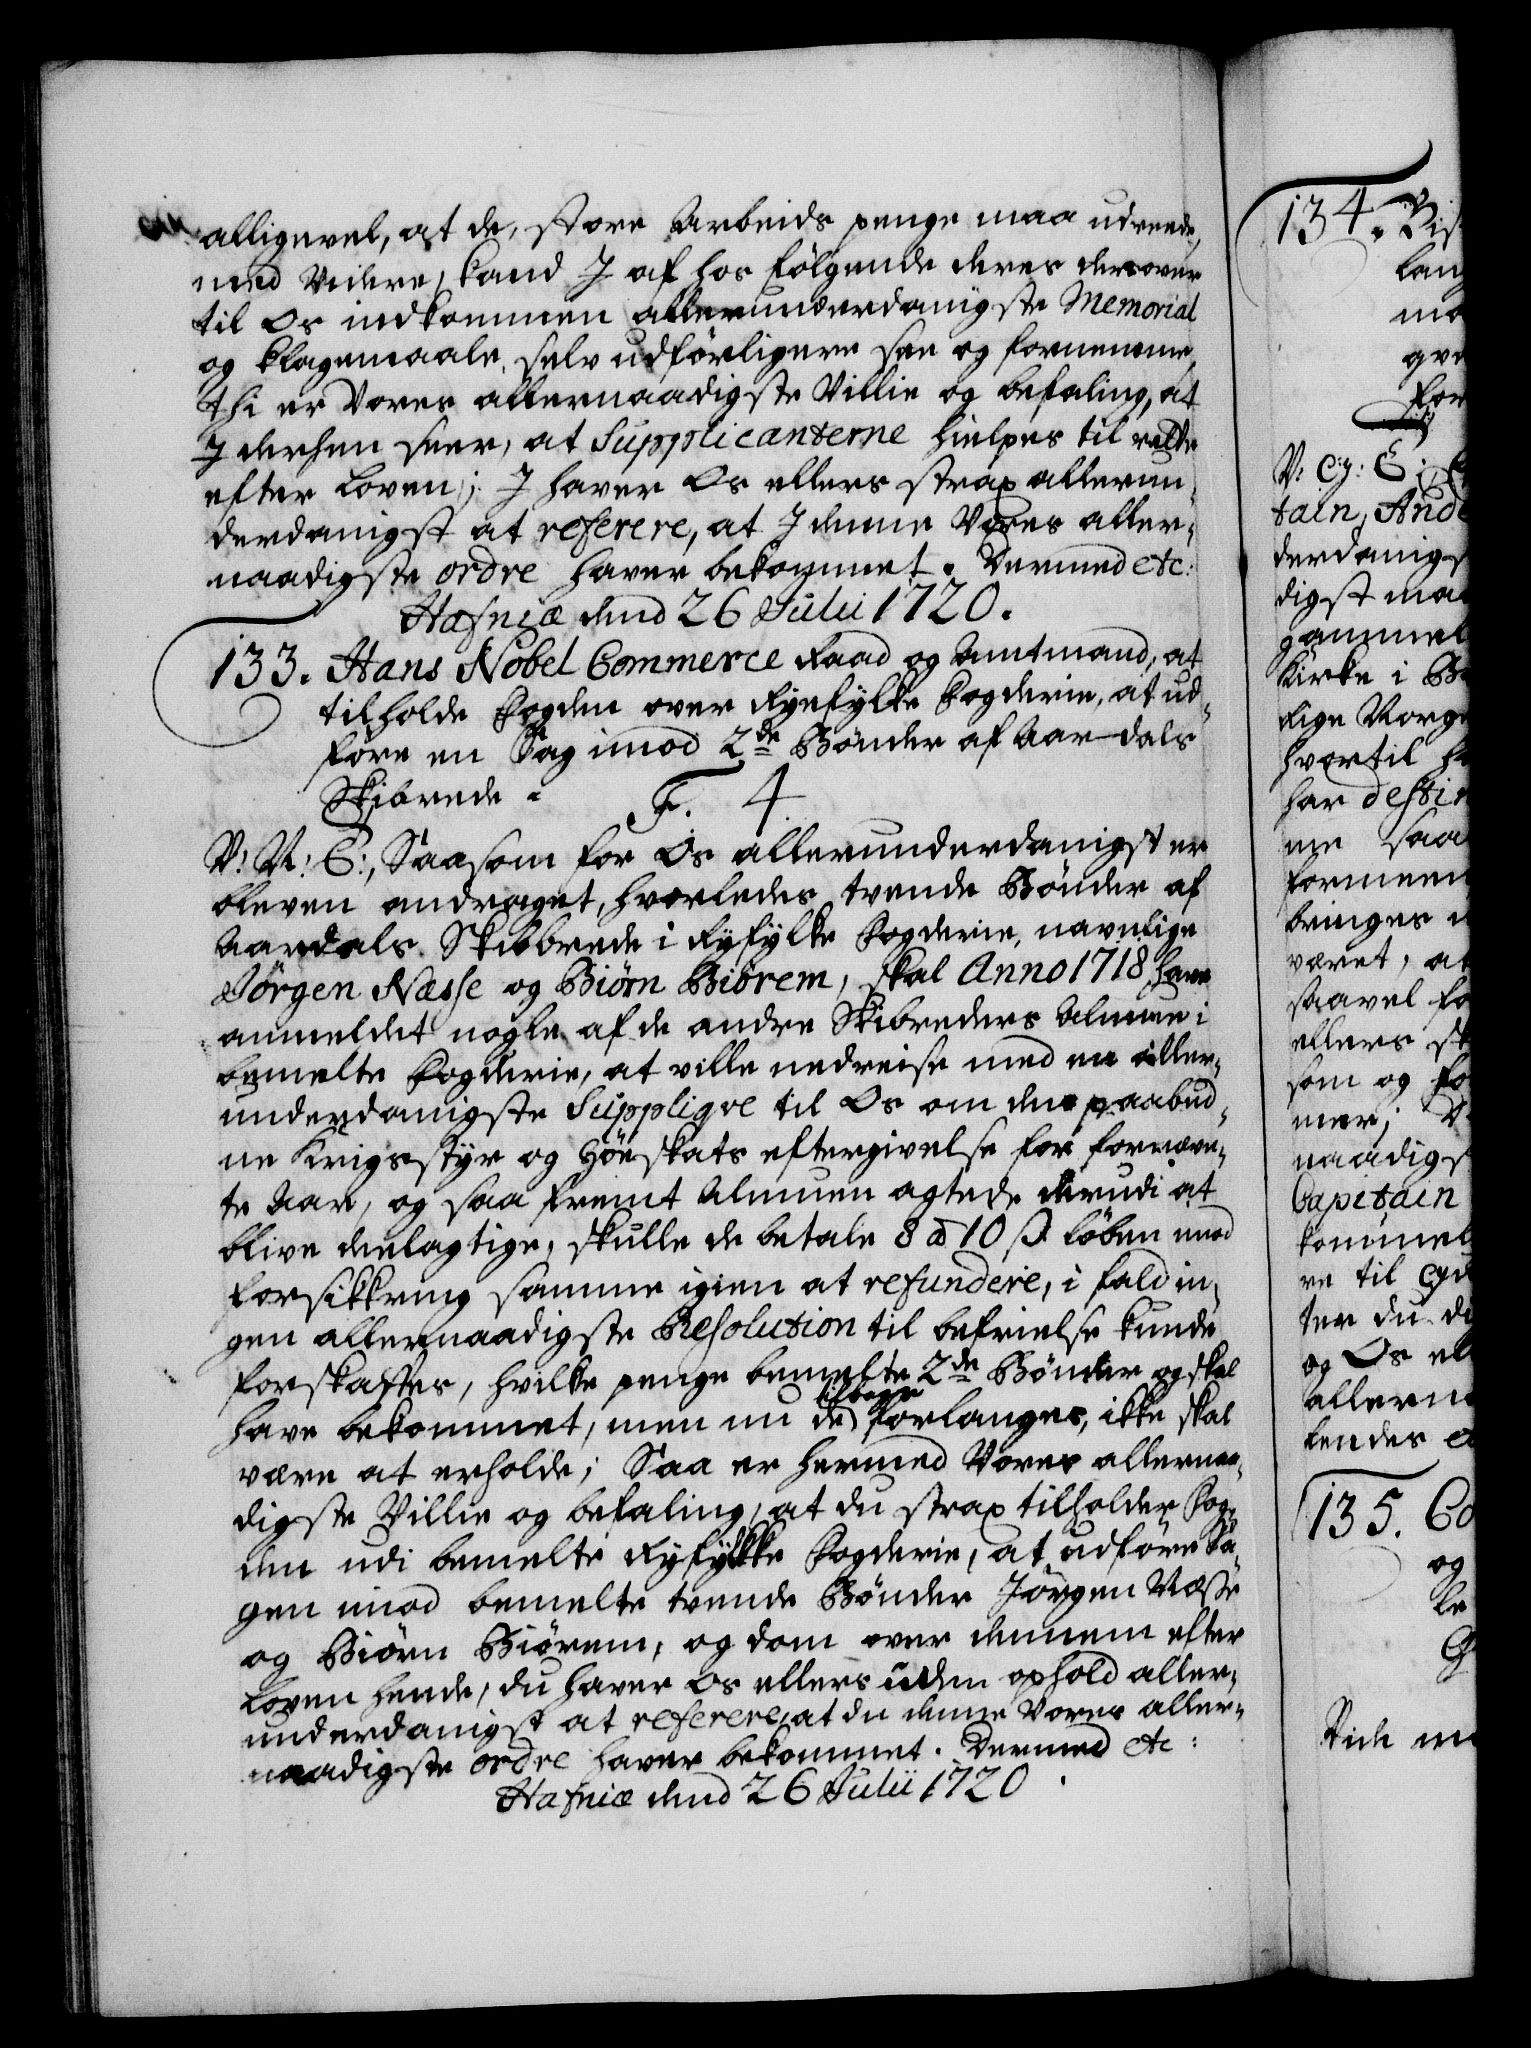 alligevel, at de, store Arbeids penge maa udreede,
med Videre, kand I af hos følgende deres derover
til Os indkommen allerunderdanigste Memorial
og klagemaale, selv udførligere see og fornemme,
thi er Vores allernaadigste Villie og befaling, at
I derhen seer, at Supplicanterne hielpes til rette
efter Loven; I haver Os ellers strax allerun-
derdanigst at referere, at I denne Vores aller-
naadigste ordre haver bekommet. Dermed etc:
Hafniæ dend 26 Julii 1720.
133. Hans Nobel Commerce Raad og Amtmand, at
tilholde Fogden over Ryefylke Fogderie, at ud-
føre en Sag imod 2de Bønder af Aardals
Skibrede.
F. 4
V: N: G:, Saasom for Os allerunderdanigst er
bleven andraget, hvorledes tvende Bønder af
Aardals Skibbrede i Ryfylke Fogderie, navnlige
Jørgen Næsse og Biørn Biørem, skal Anno 1718 have
anmeldet nogle af de andre Skibreders Almue i
bemelte Fogderie, at ville nedreise med en aller-
underdanigste Suppliqve til Os om den paabud-
ne Krigsstyr og Høeskats eftergivelse for fornævn-
te Aar, og saa fremt Almuen agtede derudi at
blive deelagtige, skulle de betale 8 à 10 ß løben imod
forsikkring samme igien at refundere, i fald in-
gen allernaadigste Resolution til befrielse kunde
forskaffes, hvilke penge bemelte 2de Bønder og skal
have bekommet, men nu de tilbage forlanges, ikke skal
være at erholde; Saa er hermed Vores allernaa-
digste Villie og befaling, at du strax tilholder Fog-
den udi bemelte Ryfylke Fogderie, at udføre Sa-
gen imod bemelte tvende Bønder Jørgen Næsse
og Biørn Biørem, og dom over dennem efter
Loven hende, du haver Os ellers uden ophold aller-
underdanigst at referere, at du denne Vores aller-
naadigste ordre haver bekommet. Dermed etc:
Hafniæ dend 26 Julii 1720.
134. Bis
lan
ma
qve
for
V: G: E:
tain, And
derdanigs
digst ma
gammel
Kirke i B
dige Norge
hvortil h
har destin
me saa
formeen
bringes
været, at
saavel fo
ellers st
som og fo
mer;
naadigs
Capitain
kommel
re til
ter du d
og Os el
allerna
lendes
135. Co
og
le
G
Vide